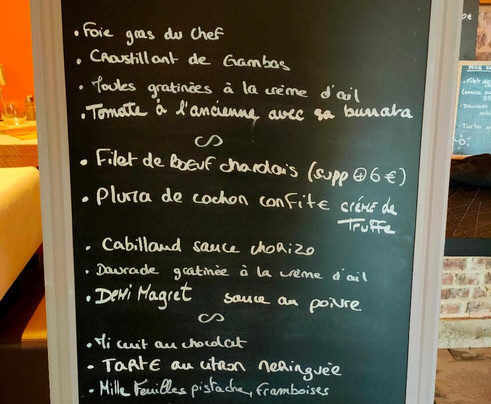 • Foie gras du Chef
• Croustillant de Gambas
• Moules gratinées à la crème d'ail
• Tomate à l'ancienne avec sa burrata
• Filet de Boeuf charolais (supp ⊕ 6 €)
• Pluma de cochon confite crème de
Truffe
• Cabillaud sauce chorizo
• Daurade gratinée à la crème d'ail
• Demi Magret sauce au poivre
• Mi cuit au chocolat
• Tarte au citron meringuée
• Mille Feuilles pistache, framboises